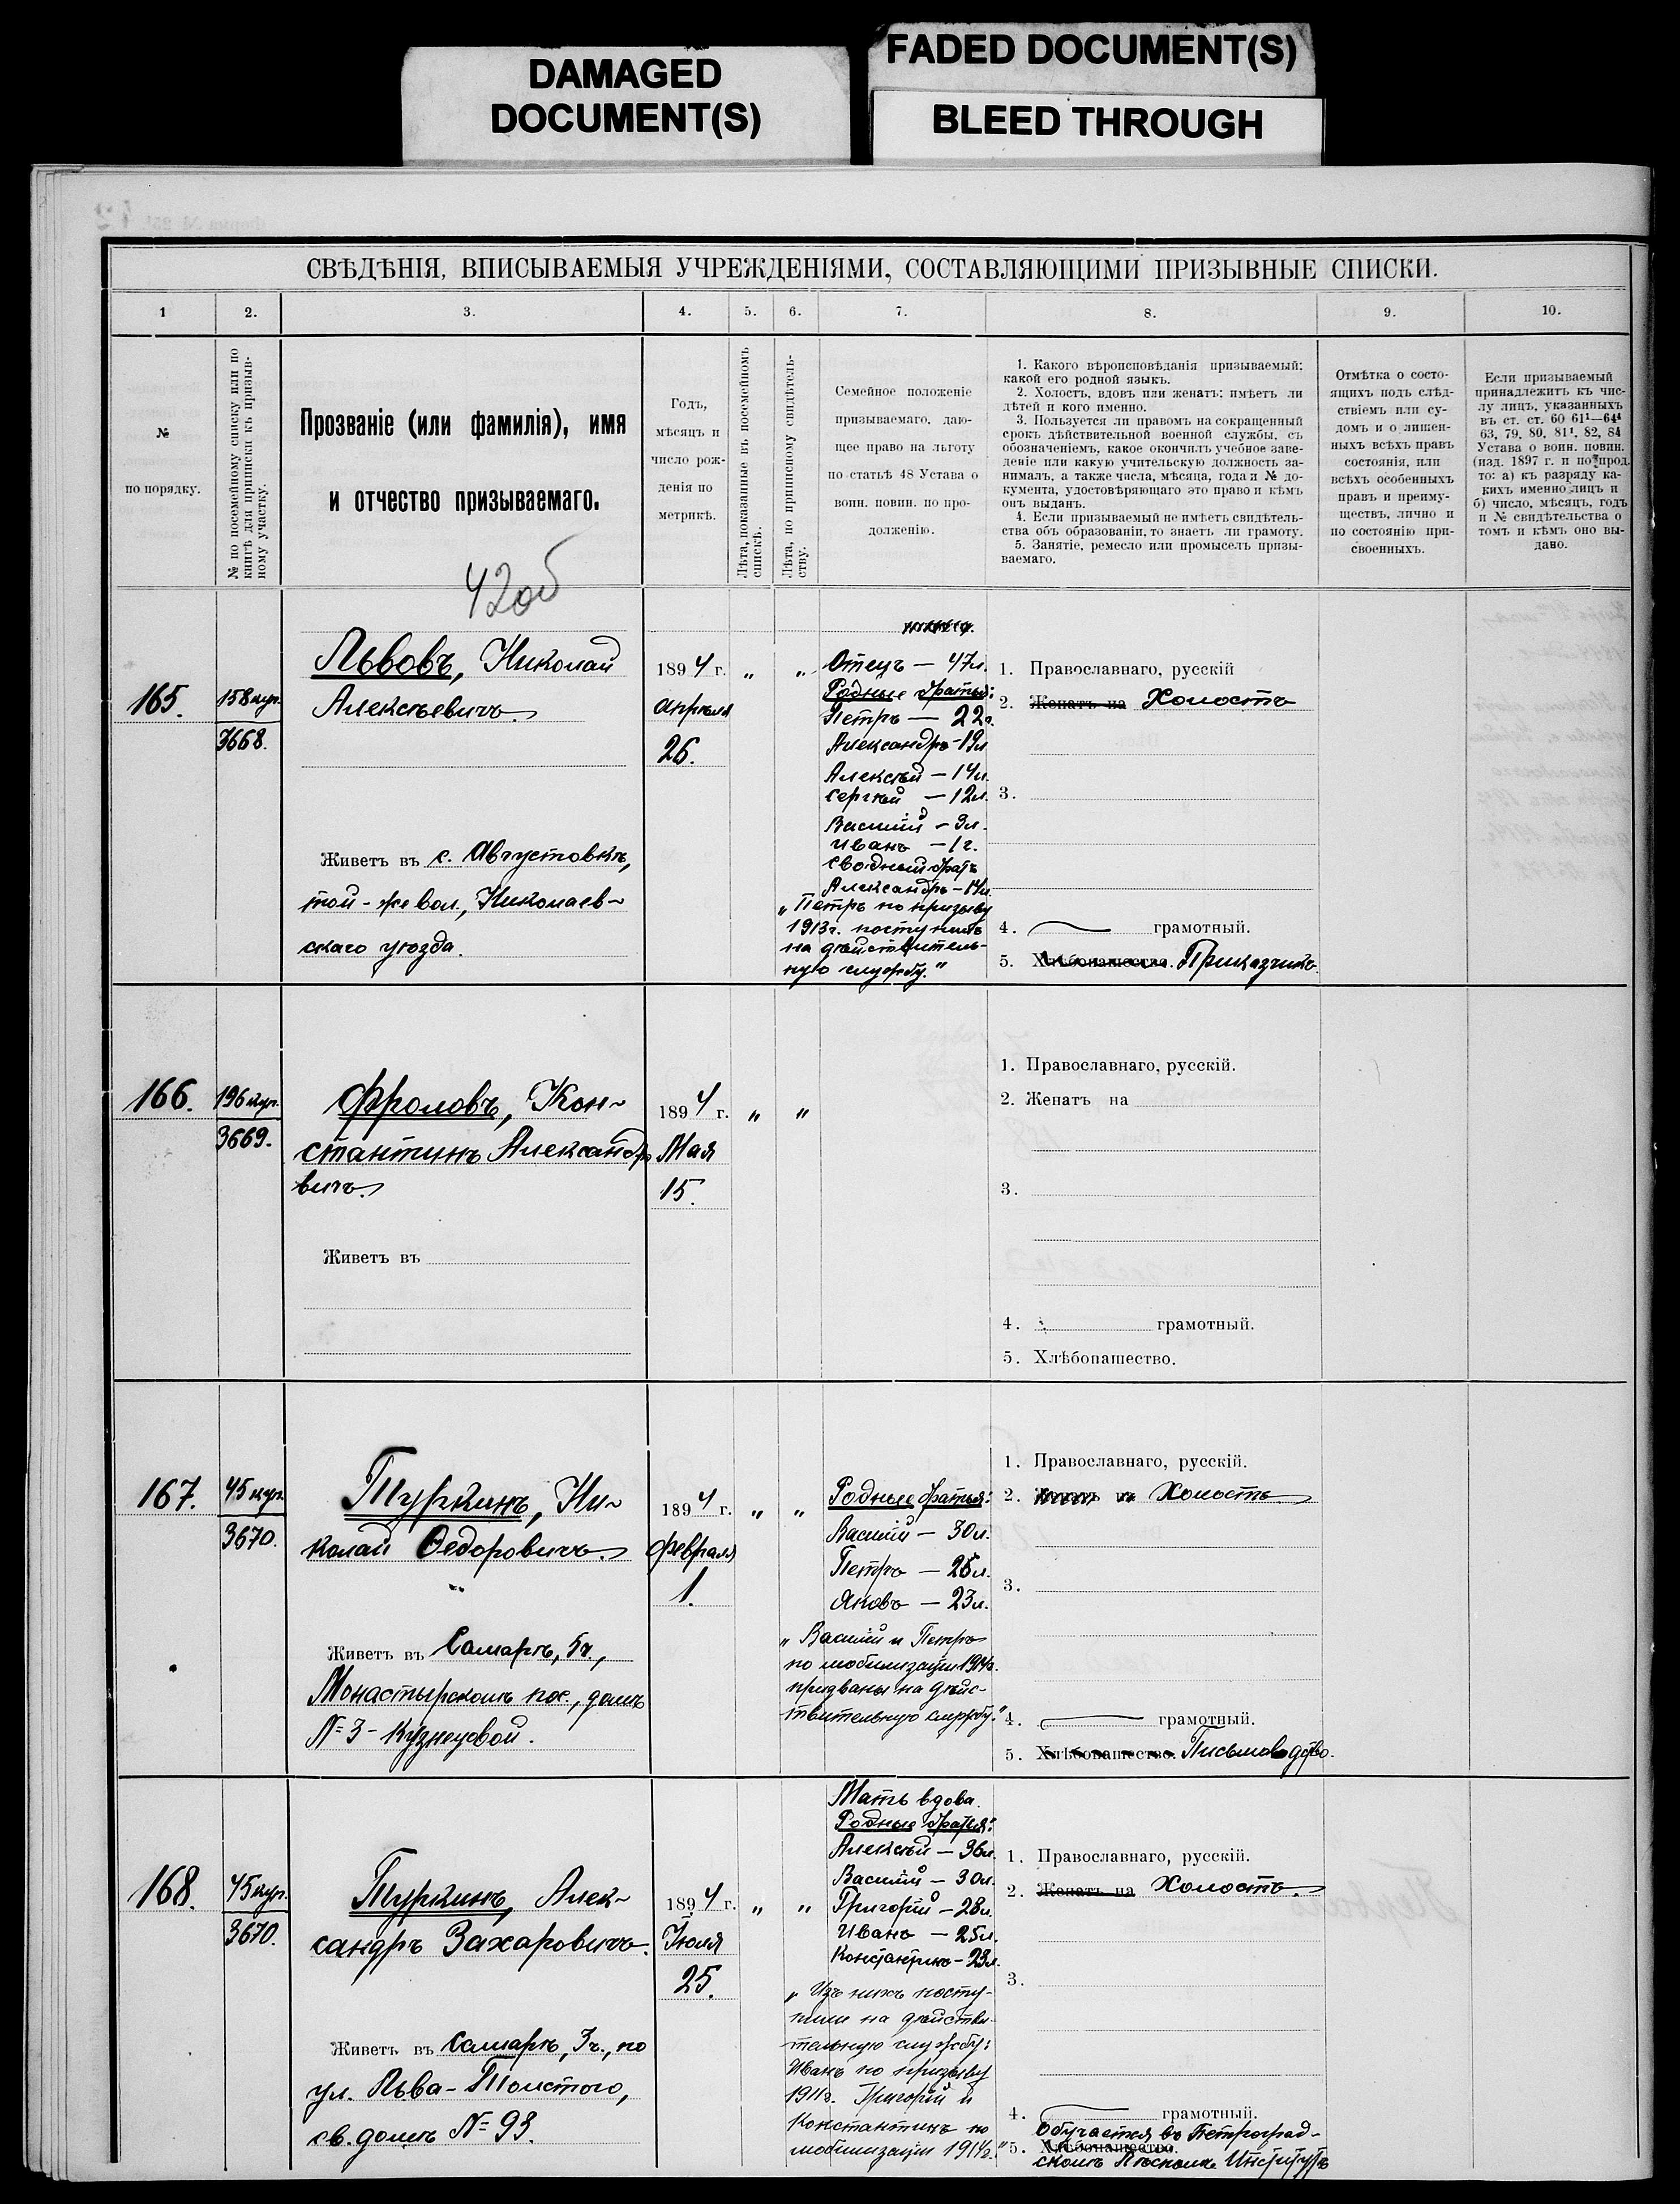 DAMAGED
DOCUMENT(S)
FADED DOCUMENT(S)
BLEED THROUGH
СВѢДѢНІЯ, ВПИСЫВАЕМЫЯ УЧРЕЖДЕНІЯМИ, СОСТАВЛЯЮЩИМИ ПРИЗЫВНЫЕ СПИСКИ.
1 2. 3. 4. 5. 6. 7. 8. 9. 10.
№
по порядку.
№ по посемейному списку или по
книгѣ для приписки къ призыв-
ному участку.
Прозваніе (или фамилія), имя
и отчество призываемаго.
Годъ,
мѣсяцъ и
число рож-
денія по
метрикѣ.
Лѣта, показанные въ посемейномъ
спискѣ.
Лѣта, по приписному свидѣтель-
ству.
Семейное положеніе
призываемаго, даю-
щее право на льготу
по статьѣ 48 Устава о
воин. повин. по про-
долженію.
1. Какого вѣроисповѣданія призываемый:
какой его родной языкъ.
2. Холостъ, вдовъ или женатъ: имѣетъ ли
дѣтей и кого именно.
3. Пользуется ли правомъ на сокращенный
срокъ дѣйствительной военной службы, съ
обозначеніемъ, какое окончилъ учебное заве-
деніе или какую учительскую должность за-
нималъ, а также числа, мѣсяца, года и № до-
кумента, удостовѣряющаго это право и кѣмъ
онъ выданъ.
4. Если призываемый не имѣетъ свидѣтель-
ства объ образованіи, то знаетъ ли грамоту.
5. Занятіе, ремесло или промыселъ призы-
ваемаго.
Отмѣтка о состо-
ящихъ подъ слѣд-
ствіемъ или су-
домъ и о лишен-
ныхъ всѣхъ правъ
состоянія, или
всѣхъ особенныхъ
правъ и преиму-
ществъ, лично и
по состоянію при-
своенныхъ.
Если призываемый
принадлежитъ къ чис-
лу лицъ, указанныхъ
въ ст. ст. 60 61¹—64⁴
63, 79, 80, 81¹, 82, 84
Устава о воин. повин.
(изд. 1897 г. и по прод.
то: а) къ разряду ка-
кихъ именно лицъ и
б) число, мѣсяцъ, годъ
и № свидѣтельства о
томъ и кѣмъ оно вы-
дано.
42об
165.
158 куп.
3668.
Львовъ, Николай
Алексѣевичъ.
Живетъ въ с. Августовкѣ,
той-же вол., Николаев-
скаго уѣзда.
1894 г.
апрѣля
26.
" "
Отецъ — 47 л.
Родные братья:
Петръ — 22 г.
Александръ — 19 л.
Алексѣй — 14 л.
Сергѣй — 12 л.
Василій — 9 л.
Иванъ — 1 г.
Сводный братъ
Александръ — 14 л.
„Петръ по призыву
1913 г. поступилъ
на дѣйствитель-
ную службу."
1. Православнаго, русскій
2. Женатъ на Холостъ
3.
4. грамотный.
5. Хлѣбопашество. Приказчикъ.
166.
196 куп.
3669.
Фроловъ, Кон-
стантинъ Александро
вичъ.
Живетъ въ
1894 г.
Мая
15.
" "
1. Православнаго, русскій.
2. Женатъ на
3.
4. грамотный.
5. Хлѣбопашество.
167.
45 куп.
3670.
Туркинъ, Ни-
колай Ѳедоровичъ.
Живетъ въ Самарѣ, 5 ч.,
Монастырскомъ пос., домъ
№ 3 - Кузнецовой.
1894 г.
февраля
1.
" "
Родные братья:
Василій — 30 л.
Петръ — 25 л.
Яковъ — 23 л.
„Василій и Петръ
по мобилизаціи 1914 г.
призваны на дѣйс-
твительную службу."
1. Православнаго, русскій.
2. Женатъ на Холостъ
3.
4. грамотный.
5. Хлѣбопашество. Письмоводство.
168.
45 куп.
3670.
Туркинъ, Алек-
сандръ Захаровичъ.
Живетъ въ Самарѣ, 3 ч., по
ул. Льва-Толстого,
св. домъ № 93.
1894 г.
Іюля
25.
" "
Мать вдова.
Родные братья:
Алексѣй — 36 л.
Василій — 30 л.
Григорій — 28 л.
Иванъ — 25 л.
Константинъ — 23 л.
„Изъ нихъ посту-
пили на дѣйстви-
тельную службу:
Иванъ по призыву
1911 г. Григорій и
Константинъ по
мобилизаціи 1914 г."
1. Православнаго, русскій.
2. Женатъ на Холостъ.
3.
4. грамотный.
Обучается въ Петроград-
5. Хлѣбопашество.
скомъ Лѣсномъ Институтѣ